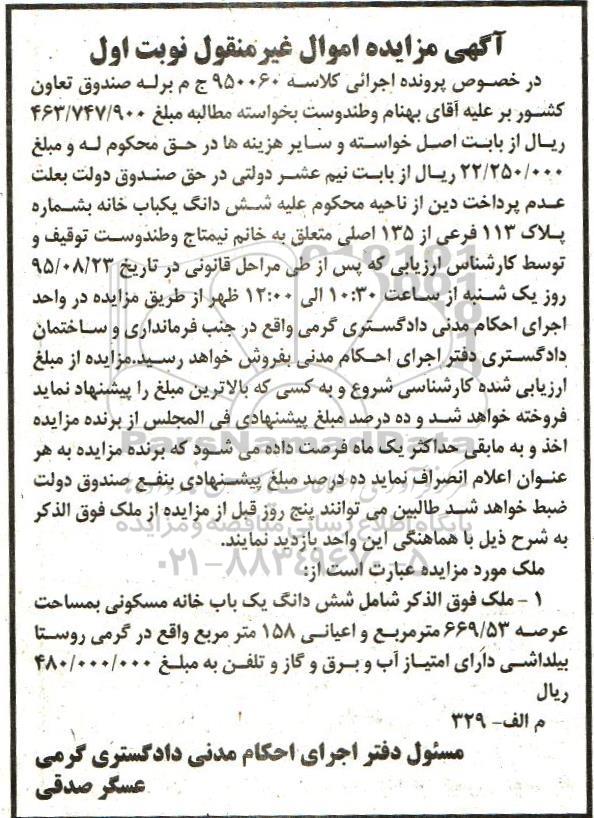 آگهی مزایده اموال غیرمنقول نوبت اول
در خصوص پرونده اجرائی کلاسه ۹۵۰۰۶۰ ج م برله صندوق تعاون
کشور بر علیه آقای بهنام وطندوست بخواسته مطالبه مبلغ ۴۶۳/۷۴۷/۹۰۰
ریال از بابت اصل خواسته و سایر هزینه ها در حق محکوم له و مبلغ
۲۲/۲۵۰/۰۰۰ ریال از بابت نیم عشر دولتی در حق صندوق دولت بعلت
عدم پرداخت دین از ناحیه محکوم علیه شش دانگ یکباب خانه بشماره
پلاک ۱۱۳ فرعی از ۱۳۵ اصلی متعلق به خانم نیمتاج وطندوست توقیف و
توسط کارشناس ارزیابی که پس از طی مراحل قانونی در تاریخ ۹۵/۰۸/۲۳
روز یک شنبه از ساعت ۱۰:۳۰ الی ۱۲:۰۰ ظهر از طریق مزایده در واحد
اجرای احکام مدنی دادگستری گرمی واقع در جنب فرمانداری و ساختمان
دادگستری دفتر اجرای احکام مدنی بفروش خواهد رسید.مزایده از مبلغ
ارزیابی شده کارشناسی شروع و به کسی که بالاترین مبلغ را پیشنهاد نماید
فروخته خواهد شد و ده درصد مبلغ پیشنهادی فی المجلس از برنده مزایده
اخذ و به مابقی حداکثر یک ماه فرصت داده می شود که برنده مزایده به هر
عنوان اعلام انصراف نماید ده درصد مبلغ پیشنهادی بنفع صندوق دولت
ضبط خواهد شد طالبین می توانند پنج روز قبل از مزایده از ملک فوق الذکر
به شرح ذیل با هماهنگی این واحد بازدید نمایند.
ملک مورد مزایده عبارت است از:
۱- ملک فوق الذکر شامل شش دانگ یک باب خانه مسکونی بمساحت
عرصه ۶۶۹/۵۳ مترمربع و اعیانی ۱۵۸ متر مربع واقع در گرمی روستا
بیلداشی دارای امتیاز آب و برق و گاز و تلفن به مبلغ ۴۸۰/۰۰۰/۰۰۰
ریال
م الف- ۳۲۹
مسئول دفتر اجرای احکام مدنی دادگستری گرمی
عسگر صدقی
ParsNamadData
پایگاه اطلاع رسانی مناقصه و مزایده